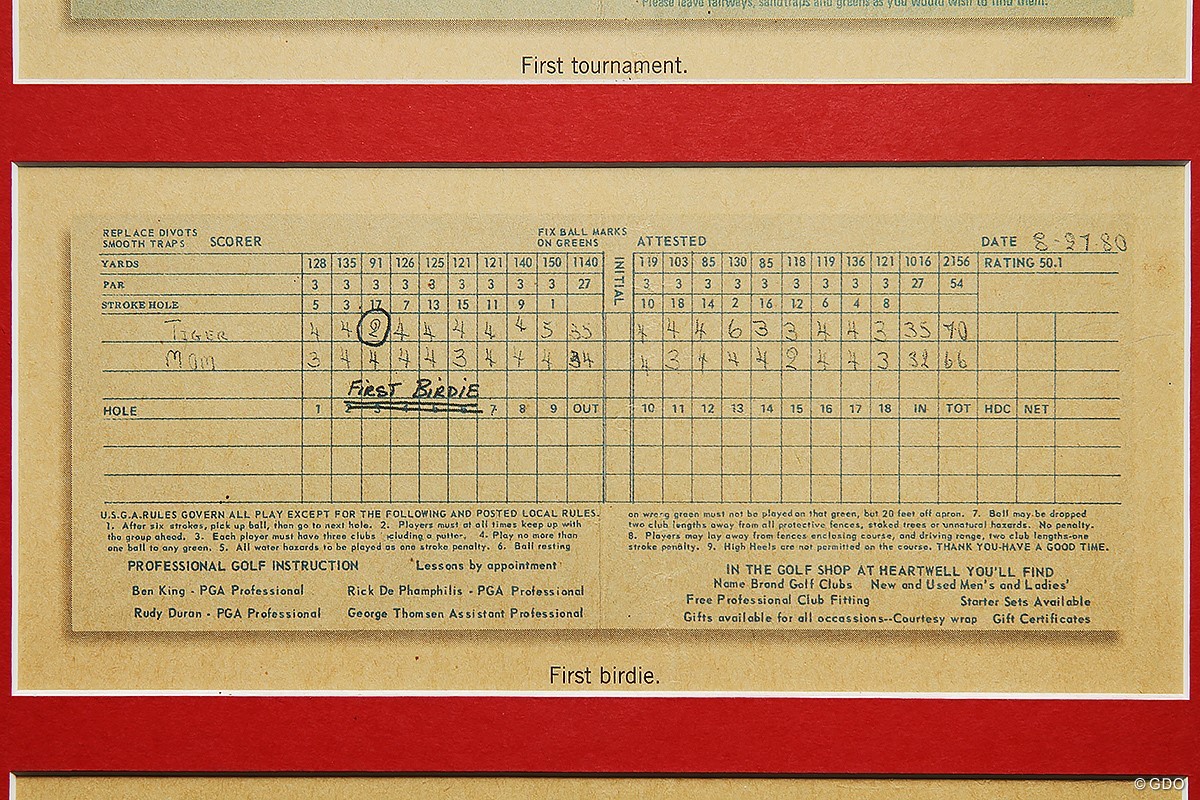 Please leave fairways, sandtraps and greens as you would wish to find them.
First tournament.
REPLACE DIVOTS
SMOOTH TRAPS SCORER FIX BALL MARKS
ON GREENS ATTESTED DATE 8-27-80
YARDS 128 135 91 126 125 121 121 140 150 1140 INITIAL 119 103 85 130 85 118 119 136 121 1016 2156 RATING 50.1
PAR 3 3 3 3 3 3 3 3 3 27 3 3 3 3 3 3 3 3 3 27 54
STROKE HOLE 5 3 17 7 13 15 11 9 1 10 18 14 2 16 12 6 4 8
TIGER 4 4 2 4 4 4 4 4 5 35 4 4 4 6 3 3 4 4 3 35 70
MOM 3 4 4 4 4 3 4 4 4 34 4 3 4 4 4 2 4 4 3 32 66
FIRST BIRDIE
HOLE 1 2 3 4 5 6 7 8 9 OUT 10 11 12 13 14 15 16 17 18 IN TOT HDC NET
U.S.G.A. RULES GOVERN ALL PLAY EXCEPT FOR THE FOLLOWING AND POSTED LOCAL RULES.
1. After six strokes, pick up ball, then go to next hole. 2. Players must at all times keep up with
the group ahead. 3. Each player must have three clubs including a putter. 4. Play no more than
one ball to any green. 5. All water hazards to be played as one stroke penalty. 6. Ball resting
on wrong green must not be played on that green, but 20 feet off apron. 7. Ball may be dropped
two club lengths away from all protective fences, staked trees or unnatural hazards. No penalty.
8. Players may lay away from fences enclosing course, and driving range, two club lengths-one
stroke penalty. 9. High Heels are not permitted on the course. THANK YOU-HAVE A GOOD TIME.
PROFESSIONAL GOLF INSTRUCTION "Lessons by appointment"
Ben King - PGA Professional Rick De Phamphilis - PGA Professional
Rudy Duran - PGA Professional George Thomsen Assistant Professional
IN THE GOLF SHOP AT HEARTWELL YOU'LL FIND
Name Brand Golf Clubs New and Used Men's and Ladies'
Free Professional Club Fitting Starter Sets Available
Gifts available for all occassions--Courtesy wrap Gift Certificates
First birdie.
© GDO